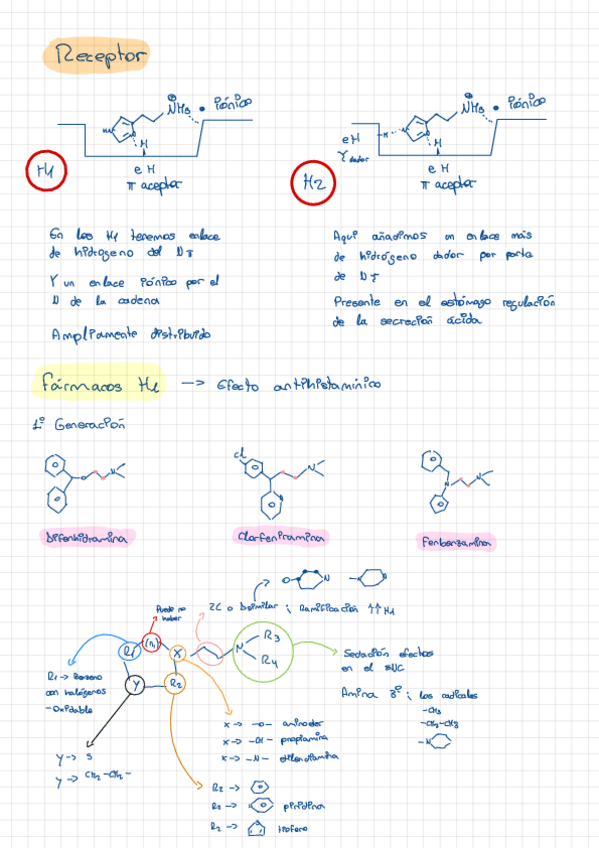 Receptor
NH3 • iónico
NH3 • iónico
HN
H
e H
H
H
Y dador
H1
e H
π aceptor
H2
e H
π aceptor
En los H1 tenemos enlace
de hidrógeno del
Y un enlace iónico por el
N de la cadena
Ampliamente distribuido
Aquí añadimos un enlace más
de hidrógeno dador por parte
de
Presente en el estómago regulación
de la secreción ácida
Fármacos H1 —> Efecto antihistamínico
1º Generación
O N
Cl
N
N N
Difenhidramina
Clorfeniramina
Fenbenzamina
O N
-N
Puede no
haber
2C o ; Ramificación ↑↑ H1
R1
(n)
X
N
R3
R4
Y
R2
Sedación efectos
en el SNC
R1 -> Benceno
con halógenos
- Oxidable
Amina 3º ; los radicales
-CH3
-CH2-CH3
-N
X -> -O-
X -> -CH-
X -> -N- etilendiamina
Y -> S
Y -> CH2-CH2-
R2 ->
R2 -> piridina
R2 ->